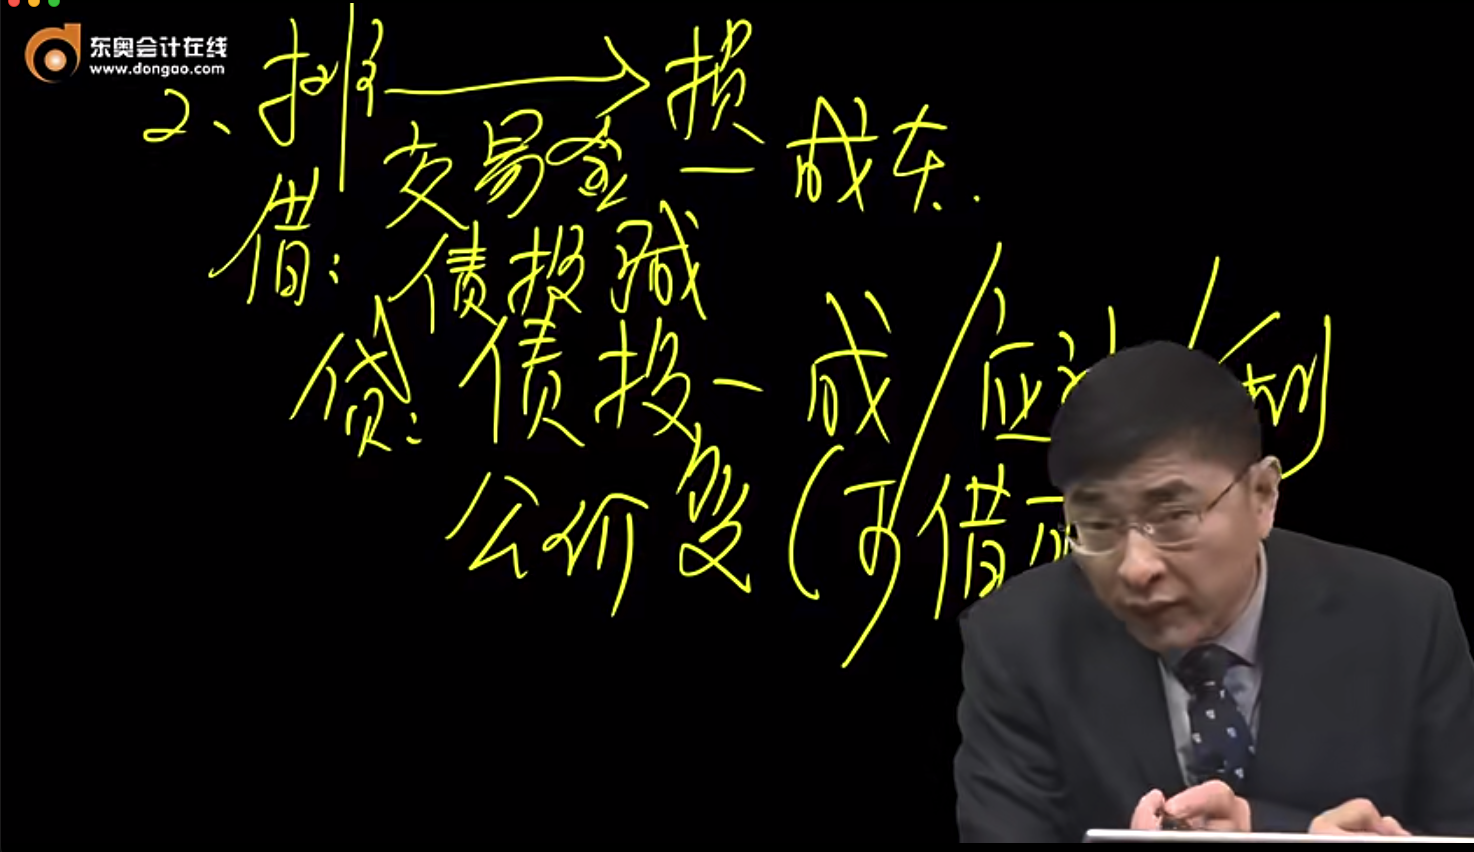 东奥会计在线
www.dongao.com
2、摊 → 损
借：交易金 — 成本.
债投减
贷：债投 — 成 / 应计 / 利
公价变（可借可